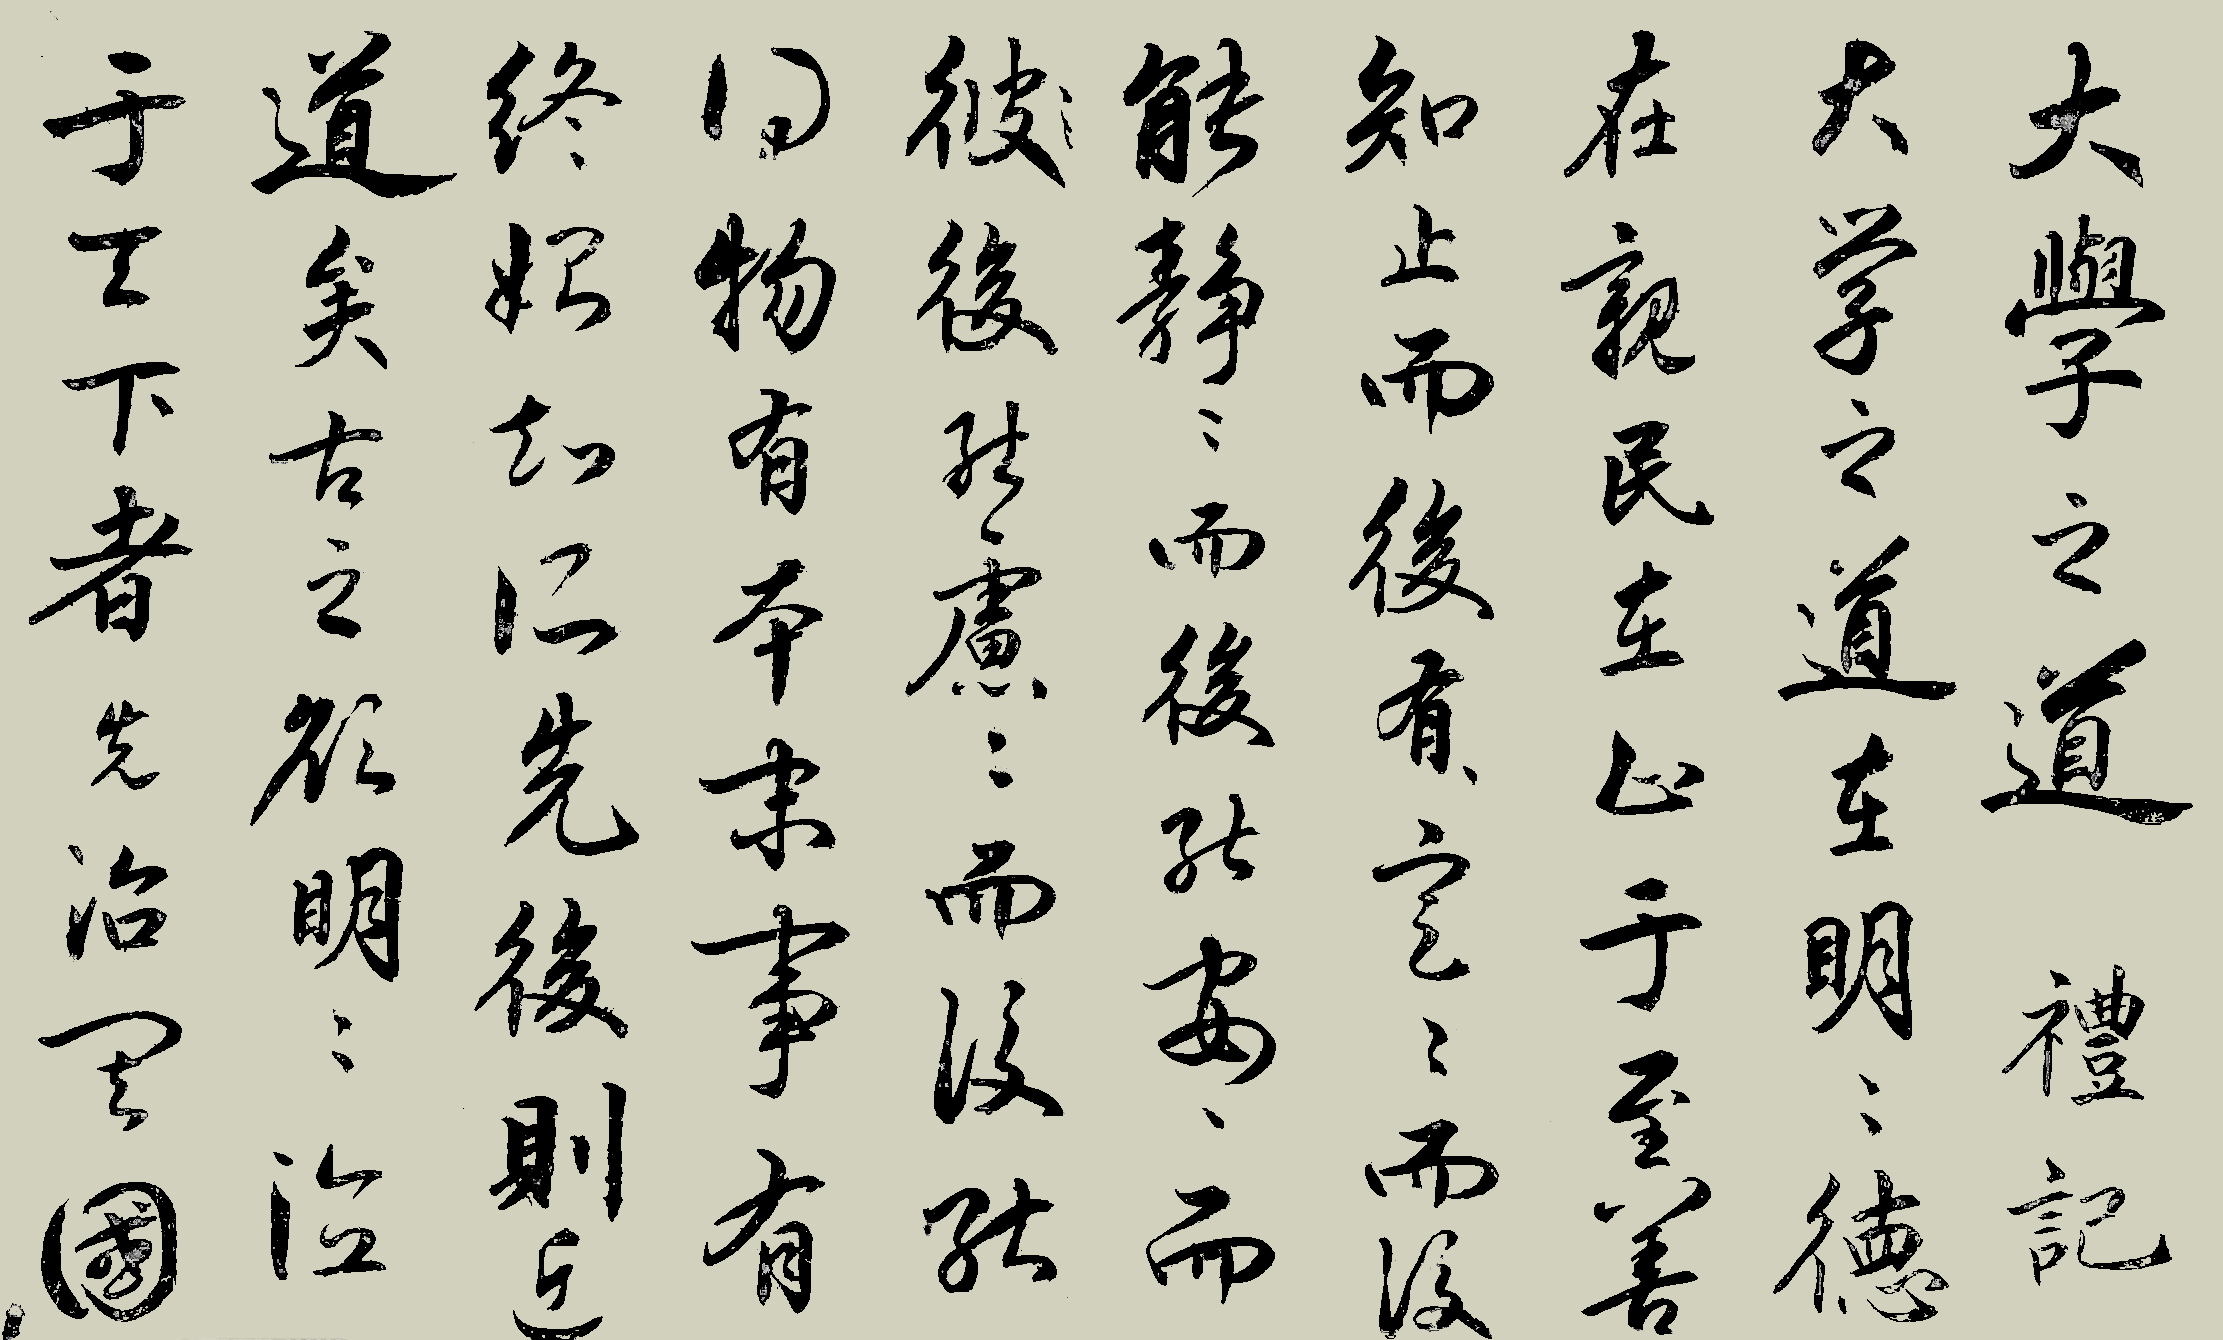 大學之道 禮記
大学之道在明〻德
在親民在止于至善
知止而後有定〻而後
能静〻而後能安〻而
彼〻後能慮〻而後能
得物有本末事有
終始知所先後則近
道矣古之欲明〻德
于天下者先治其國